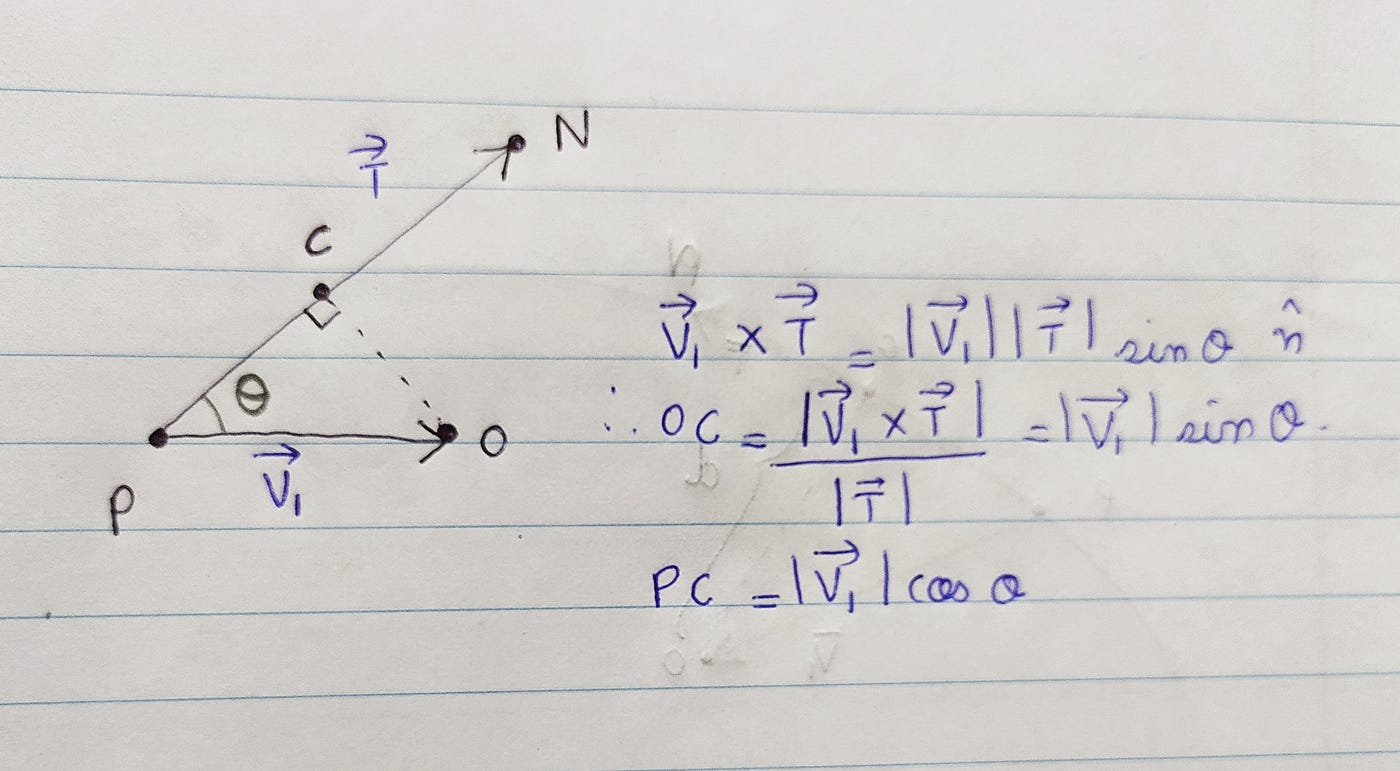 N
T⃗
C
θ
O
V⃗₁
P
V⃗₁ × T⃗ = |V⃗₁||T⃗| sin θ n̂
∴ OC = |V⃗₁ × T⃗| / |T⃗| = |V⃗₁| sin θ.
PC = |V⃗₁| cos θ